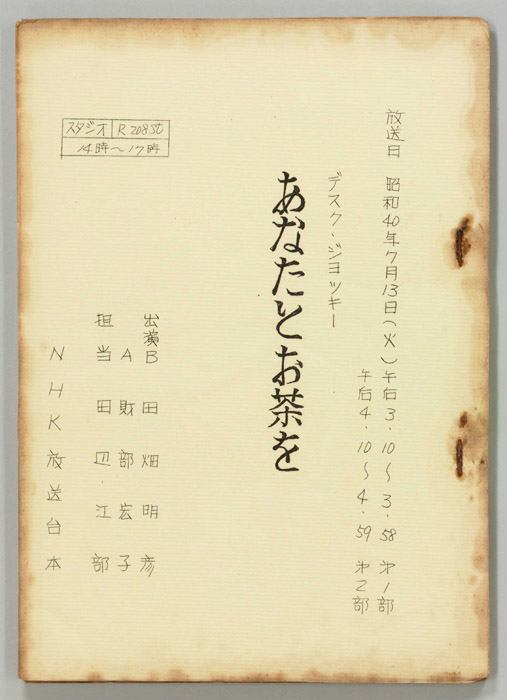 放送日 昭和40年7月13日(火)午后3.10〜3.58 第1部
午后4.10〜4.59 第2部
デスク・ジョッキー
あなたとお茶を
スタジオ R208St
14時〜17時
出演B 田畑明彦
A 財部宏子
担当 田辺・江部
NHK放送台本